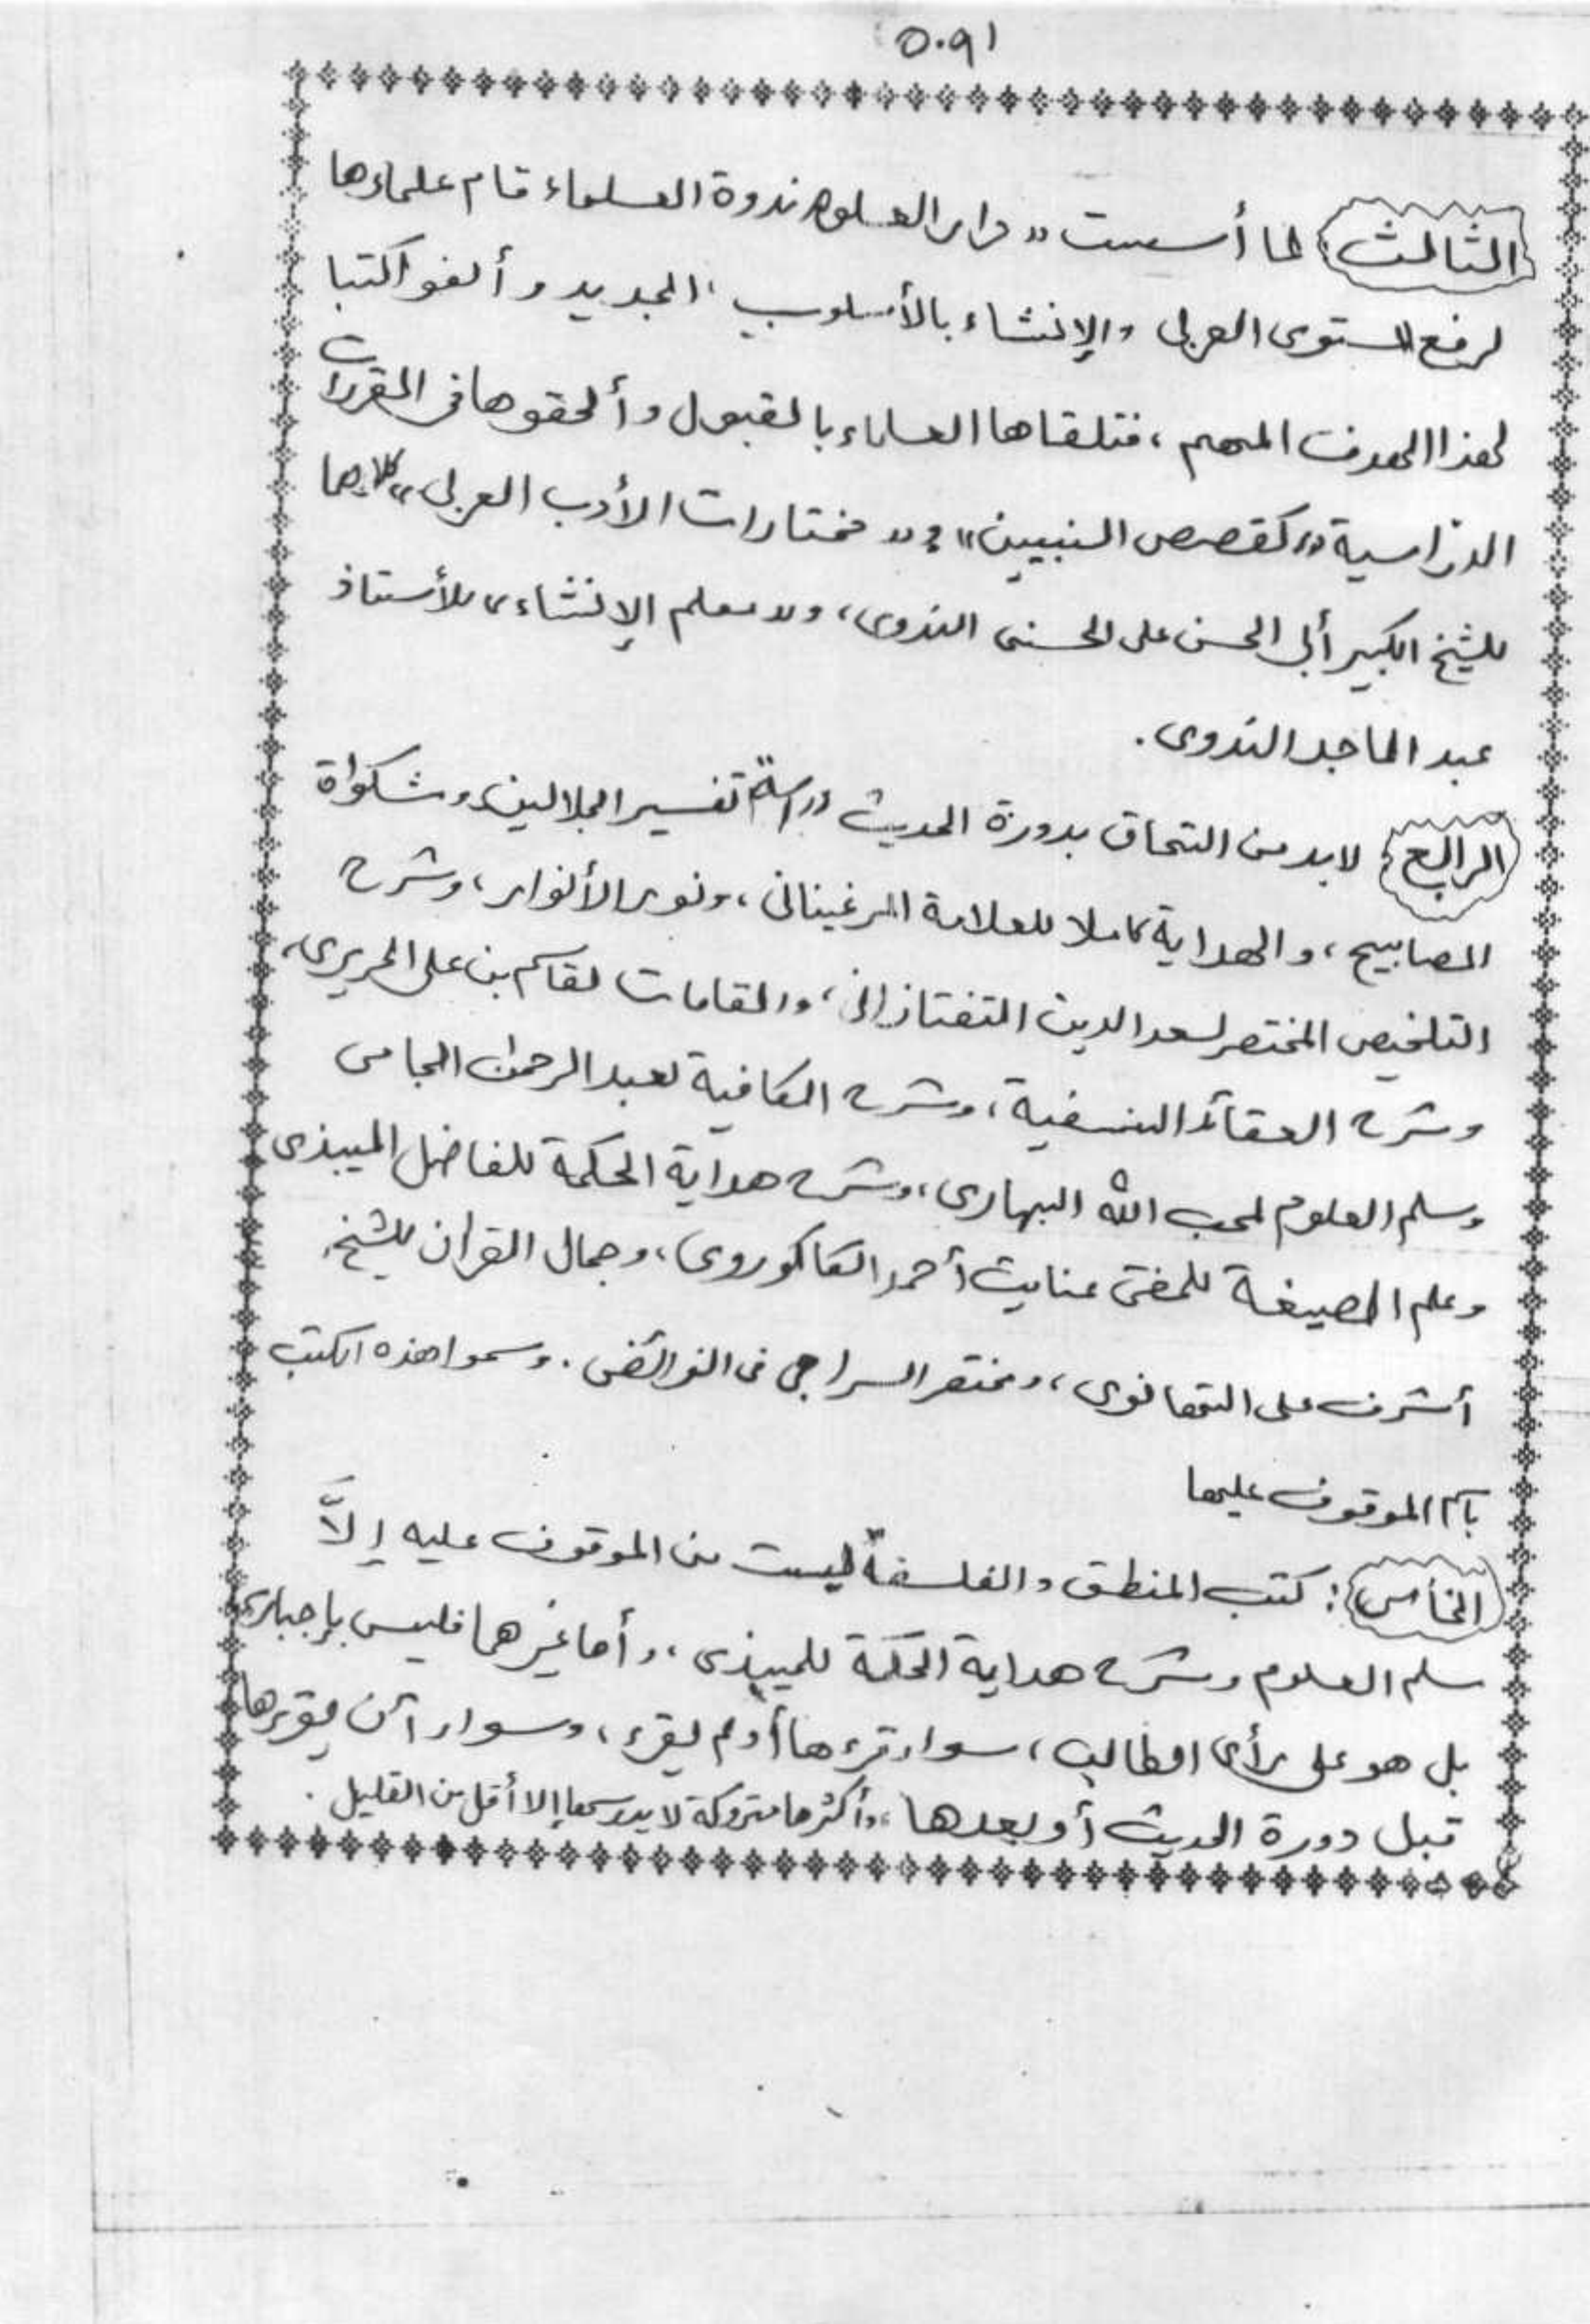 ٥٠٩١
الثالث لما أسست "دار العلوم ندوة العلماء قام علماءها
لرفع المستوى العربى والإنشاء بالأسلوب الجديد وألفو اكتبا
لهذا الهدف المهم، فتلقاها العلماء بالقبول وألحقوها فى المقررات
الدراسية "كقصص النبيين" و"مختارات الأدب العربى" كلاهما
للشيخ الكبير أبى الحسن على الحسنى الندوى، و"معلم الإنشاء" للأستاذ
عبد الماجد الندوى.
الرابع لابد من التحاق بدورة الحديث دراسة تفسير الجلالين ومشكواة
المصابيح، والهداية كاملا للعلامة المرغينانى، ونور الأنوار، وشرح
التلخيص المختصر لسعد الدين التفتازانى، والمقامات لقاسم بن على الحريرى،
وشرح العقائد النسفية، وشرح الكافية لعبد الرحمان الجامى
وسلم العلوم لمحب الله البهارى، وشرح هداية الحكمة للفاضل الميبذى
وعلم الصيغة للمفتى عنايت أحمد الكاكوروى، وجمال القران للشيخ
أشرف على التهانوى، ومختصر السراجى فى الفرائض. وسموا هذه الكتب
باسم الموقوف عليها
الخامس: كتب المنطق والفلسفة ليست من الموقوف عليه إلاَّ
سلم العلوم وشرح هداية الحكمة للميبذى، وأما غيرهما فليس بإجبارى
بل هو على رأى الطالب، سواء قرءها أو لم يقرء، وسواء أن يقرءها
قبل دورة الحديث أو بعدها، وأكثرها متروكة لا يدرسها إلا أقل من القليل.